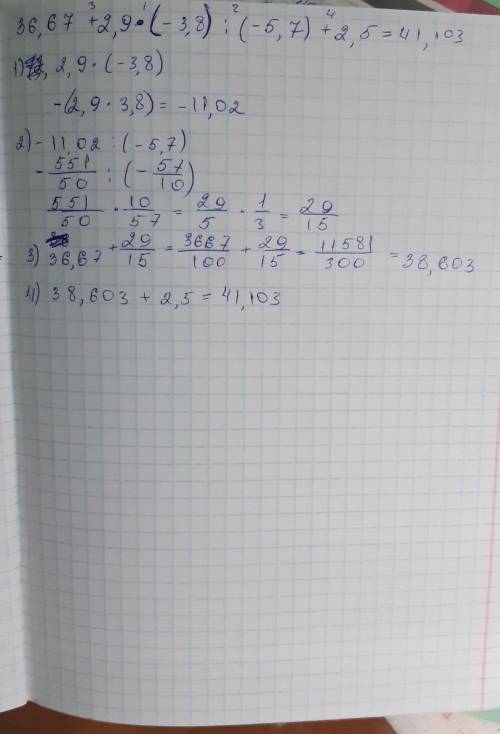 36,67 +³ 2,9 ·¹ (-3,8) :² (-5,7) +⁴ 2,5 = 41,103
1) 2,9 · (-3,8)
-(2,9 · 3,8) = -11,02
2) -11,02 : (-5,7)
-551/50 : (-57/10)
551/50 · 10/57 = 29/5 · 1/3 = 29/15
3) 36,67 + 29/15 = 3667/100 + 29/15 = 11581/300 = 38,603
4) 38,603 + 2,5 = 41,103